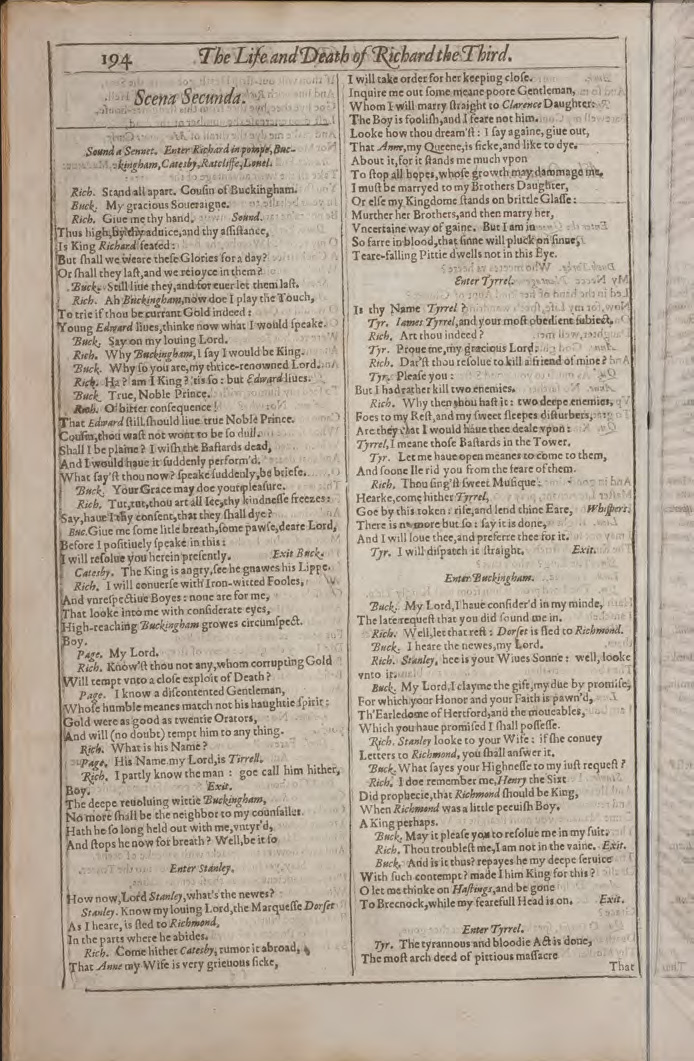 194 The Life and Death of Richard the Third.
Scena Secunda.
Sound a Sennet. Enter Richard in pompe, Buc-
kingham, Catesby, Ratcliffe, Louel.
Rich. Stand all apart. Cousin of Buckingham.
Buck. My gracious Soueraigne.
Rich. Giue me thy hand. Sound.
Thus high, by thy aduice, and thy assistance,
Is King Richard seated:
But shall we weare these Glories for a day?
Or shall they last, and we reioyce in them?
Buck. Still liue they, and for euer let them last.
Rich. Ah Buckingham, now doe I play the Touch,
To trie if thou be currant Gold indeed:
Young Edward liues, thinke now what I would speake.
Buck. Say on my louing Lord.
Rich. Why Buckingham, I say I would be King.
Buck. Why so you are, my thrice-renowned Lord.
Rich. Ha? am I King? 'tis so: but Edward liues.
Buck. True, Noble Prince.
Rich. O bitter consequence!
That Edward still should liue true Noble Prince.
Cousin, thou wast not wont to be so dull.
Shall I be plaine? I wish the Bastards dead,
And I would haue it suddenly perform'd.
What say'st thou now? speake suddenly, be briefe.
Buck. Your Grace may doe your pleasure.
Rich. Tut, tut, thou art all Ice, thy kindnesse freezes:
Say, haue I thy consent, that they shall dye?
Buc. Giue me some litle breath, some pawse, deare Lord,
Before I positiuely speake in this:
I will resolue you herein presently. Exit Buck.
Catesby. The King is angry, see he gnawes his Lippe.
Rich. I will conuerse with Iron-witted Fooles,
And vnrespectiue Boyes: none are for me,
That looke into me with considerate eyes,
High-reaching Buckingham growes circumspect.
Boy.
Page. My Lord.
Rich. Know'st thou not any, whom corrupting Gold
Will tempt vnto a close exploit of Death?
Page. I know a discontented Gentleman,
Whose humble meanes match not his haughtie spirit:
Gold were as good as twentie Orators,
And will (no doubt) tempt him to any thing.
Rich. What is his Name?
Page. His Name, my Lord, is Tirrell.
Rich. I partly know the man: goe call him hither,
Boy. Exit.
The deepe reuoluing wittie Buckingham,
No more shall be the neighbor to my counsailes.
Hath he so long held out with me, vntyr'd,
And stops he now for breath? Well, be it so.
Enter Stanley.
How now, Lord Stanley, what's the newes?
Stanley. Know my louing Lord, the Marquesse Dorset
As I heare, is fled to Richmond,
In the parts where he abides.
Rich. Come hither Catesby, rumor it abroad,
That Anne my Wife is very grieuous sicke,
I will take order for her keeping close.
Inquire me out some meane poore Gentleman,
Whom I will marry straight to Clarence Daughter:
The Boy is foolish, and I feare not him.
Looke how thou dream'st: I say againe, giue out,
That Anne, my Queene, is sicke, and like to dye.
About it, for it stands me much vpon
To stop all hopes, whose growth may dammage me.
I must be marryed to my Brothers Daughter,
Or else my Kingdome stands on brittle Glasse:
Murther her Brothers, and then marry her,
Vncertaine way of gaine. But I am in
So farre in blood, that sinne will pluck on sinne,
Teare-falling Pittie dwells not in this Eye.
Enter Tyrrel.
Is thy Name Tyrrel?
Tyr. Iames Tyrrel, and your most obedient subiect.
Rich. Art thou indeed?
Tyr. Proue me, my gracious Lord.
Rich. Dar'st thou resolue to kill a friend of mine?
Tyr. Please you:
But I had rather kill two enemies.
Rich. Why then thou hast it: two deepe enemies,
Foes to my Rest, and my sweet sleepes disturbers,
Are they that I would haue thee deale vpon:
Tyrrel, I meane those Bastards in the Tower.
Tyr. Let me haue open meanes to come to them,
And soone Ile rid you from the feare of them.
Rich. Thou sing'st sweet Musique:
Hearke, come hither Tyrrel,
Goe by this token: rise, and lend thine Eare, Whispers.
There is no more but so: say it is done,
And I will loue thee, and preferre thee for it.
Tyr. I will dispatch it straight. Exit.
Enter Buckingham.
Buck. My Lord, I haue consider'd in my minde,
The late request that you did sound me in.
Rich. Well, let that rest: Dorset is fled to Richmond.
Buck. I heare the newes, my Lord.
Rich. Stanley, hee is your Wiues Sonne: well, looke
vnto it.
Buck. My Lord, I clayme the gift, my due by promise,
For which your Honor and your Faith is pawn'd,
Th'Earledome of Hertford, and the moueables,
Which you haue promised I shall possesse.
Rich. Stanley looke to your Wife: if she conuey
Letters to Richmond, you shall answer it.
Buck. What sayes your Highnesse to my iust request?
Rich. I doe remember me, Henry the Sixt
Did prophecie, that Richmond should be King,
When Richmond was a little peeuish Boy.
A King perhaps.
Buck. May it please you to resolue me in my suit.
Rich. Thou troublest me, I am not in the vaine. Exit.
Buck. And is it thus? repayes he my deepe seruice
With such contempt? made I him King for this?
O let me thinke on Hastings, and be gone
To Brecnock, while my fearefull Head is on. Exit.
Enter Tyrrel.
Tyr. The tyrannous and bloodie Act is done,
The most arch deed of pittious massacre
That